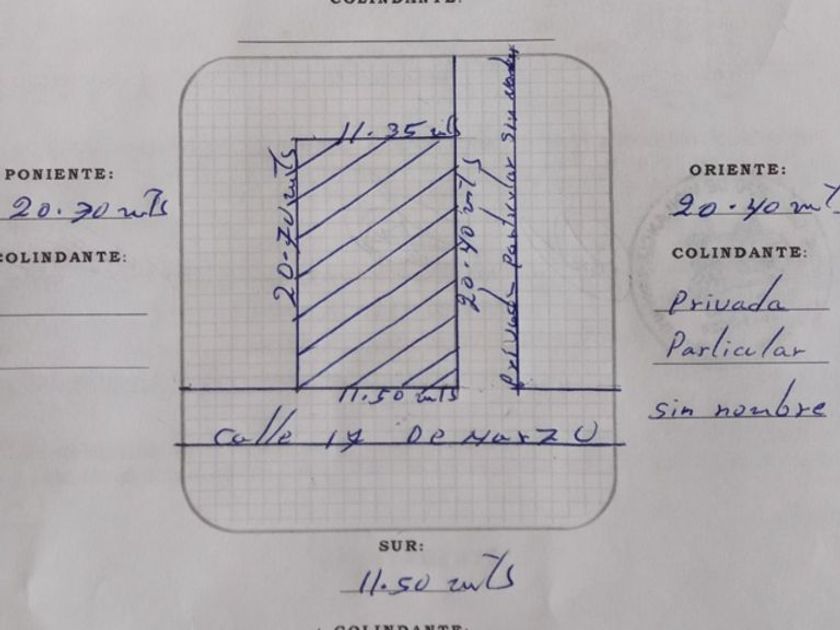 COLINDANTE:
PONIENTE:
20.70 mts
COLINDANTE:
11.35 mts
20.70 mts
20.40 mts
Privada Particular sin nombre
ORIENTE:
20.40 mts
COLINDANTE:
Privada
Particular
sin nombre
11.50 mts
Calle 17 De Marzo
SUR:
11.50 mts
COLINDANTE: